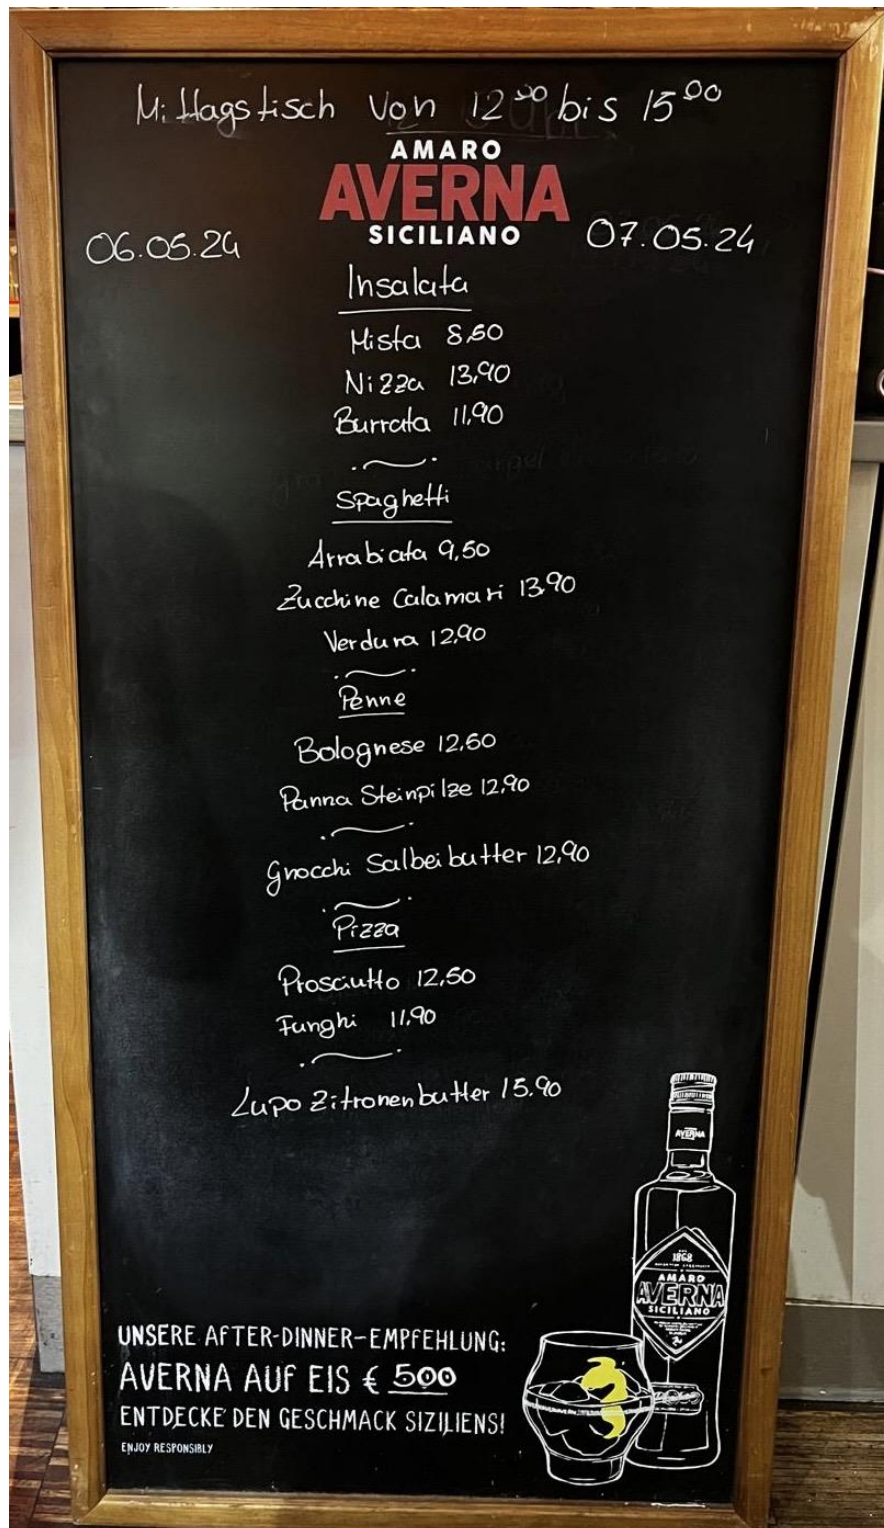 Mittagstisch von 12 00 bis 15 00
AMARO
AVERNA
SICILIANO
06.05.24
07.05.24
Insalata
Mista 8,50
Nizza 13,90
Burrata 11,90
Spaghetti
Arrabiata 9,50
Zucchine Calamari 13,90
Verdura 12,90
Penne
Bolognese 12,50
Panna Steinpilze 12,90
Gnocchi Salbeibutter 12,90
Pizza
Prosciutto 12,50
Funghi 11,90
Lupo Zitronenbutter 15,90
AVERNA
1868
AMARO
AVERNA
SICILIANO
UNSERE AFTER-DINNER-EMPFEHLUNG:
AVERNA AUF EIS € 500
ENTDECKE DEN GESCHMACK SIZILIENS!
ENJOY RESPONSIBLY